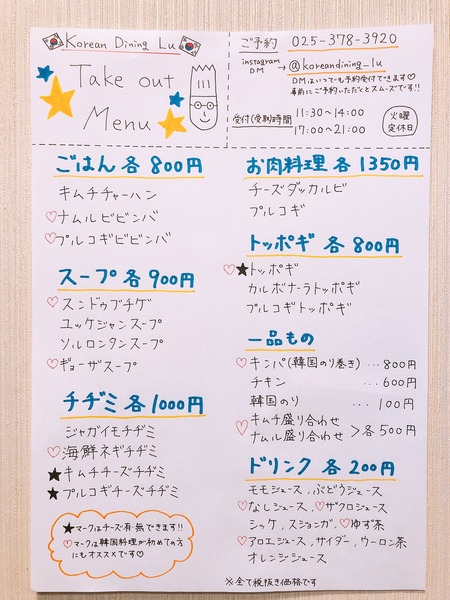 Korean Dining Lu
Take out
Menu
ご予約 025-378-3920
instagram DM → @koreandining_lu
DMはいつでも予約受付できます♡
事前にご予約いただくとスムーズです!!
受付(受取)時間 11:30~14:00
17:00~21:00
火曜定休日
ごはん 各800円
キムチチャーハン
♡ナムルビビンバ
♡プルコギビビンバ
スープ 各900円
♡スンドゥブチゲ
ユッケジャンスープ
ソルロンタンスープ
♡ギョーザスープ
チヂミ 各1000円
ジャガイモチヂミ
♡海鮮ネギチヂミ
★キムチチーズチヂミ
★プルコギチーズチヂミ
★マークはチーズ有・無できます!!
♡マークは韓国料理が初めての方
にもオススメです♡
お肉料理 各1350円
チーズダッカルビ
プルコギ
トッポギ 各800円
♡★トッポギ
カルボナーラトッポギ
プルコギトッポギ
一品もの
♡キンパ(韓国のり巻き) …800円
チキン …600円
韓国のり …100円
♡キムチ盛り合わせ
ナムル盛り合わせ >各500円
ドリンク 各200円
モモジュース,ぶどうジュース
♡なしジュース,♡ザクロジュース
シッケ,スジョンガ,♡ゆず茶
♡アロエジュース,サイダー,ウーロン茶
オレンジジュース
※全て税抜き価格です